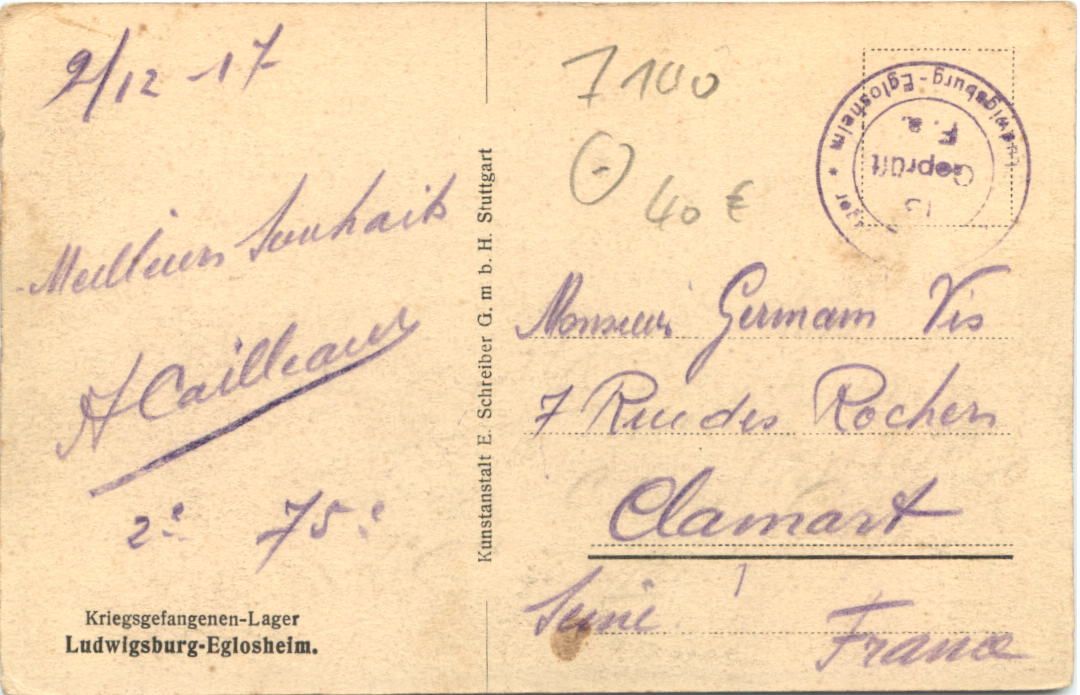 2/12 - 17
Meilleurs Souhaits
A Cailleaux
2e 75e
Kriegsgefangenen-Lager
Ludwigsburg-Eglosheim.
Kunstanstalt E. Schreiber G. m b. H. Stuttgart
7 100
40 €
Ludwigsburg-Eglosheim * Lager
F. a.
Geprüft
13
Monsieur Germain Vis
7 Rue des Rochers
Clamart
Seine
France